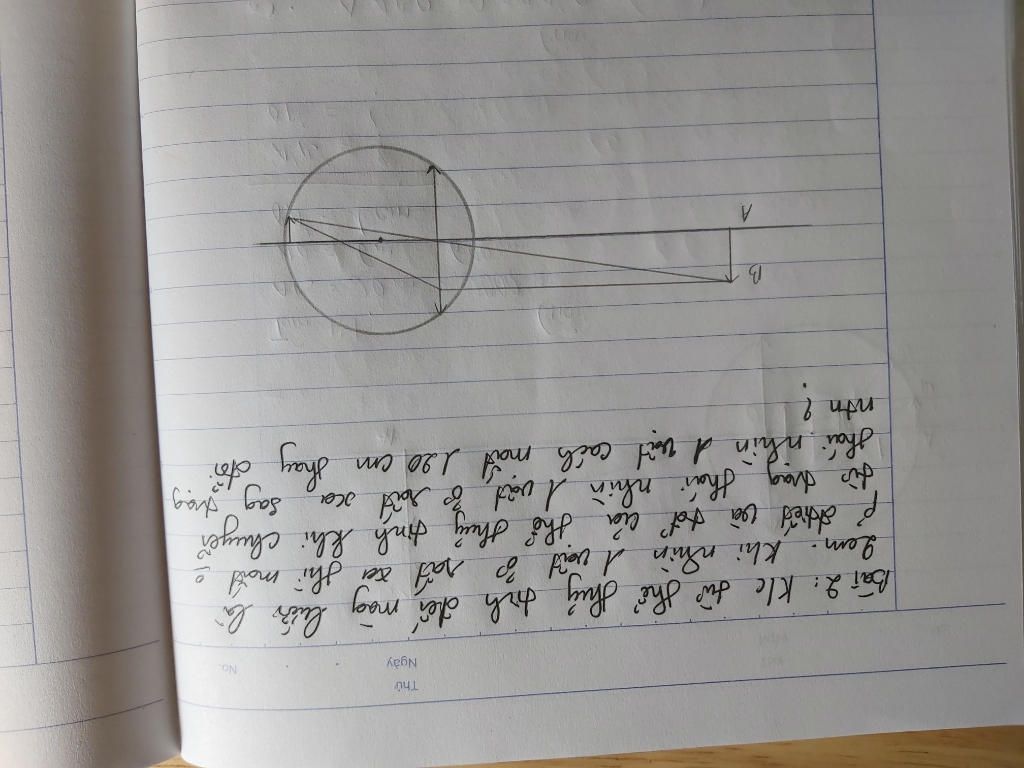 Thứ
Ngày
No.
Bài 2: K/c từ thể thủy tinh đến màng lưới là
2cm. Khi nhìn 1 vật ở rất xa thì mắt o
p điều tiết và tđ của thể thủy tinh khi chuyển
từ trạng thái nhìn 1 vật ở rất xa sag trạng
thái nhìn 1 vật cách mắt 120 cm thay đổi
ntn ?
B
A